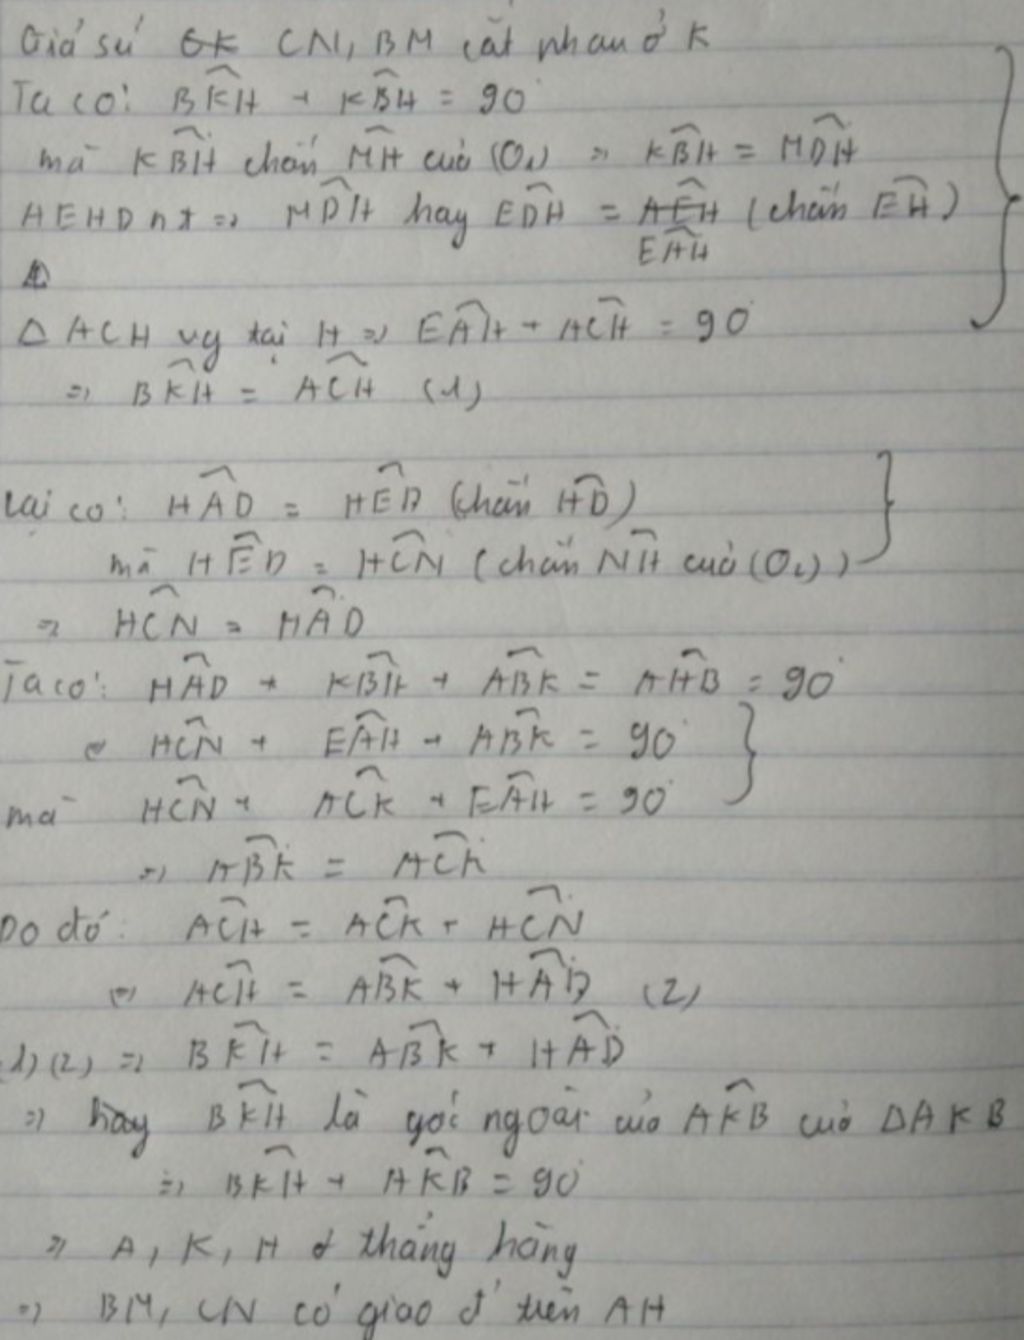 Giả sử GK CN, BM cắt nhau ở K
Ta có: BKH + KBH = 90°
mà KBH chắn MH của (O₁) => KBH = MDH
AEHD nt => MDH hay EDH = AEH (chắn EH)
EAH
Δ ACH vg tại H => EAH + ACH = 90°
=> BKH = ACH (1)
Lại có: HAD = HED (chắn HD)
mà HED = HCN (chắn NH của (O₂))
=> HCN = HAD
Ta có: HAD + KBH + ABK = AHB = 90°
<=> HCN + EAH + ABK = 90°
mà HCN + ACK + EAH = 90°
=> ABK = ACK
Do đó: ACH = ACK + HCN
<=> ACH = ABK + HAD (2)
(1)(2) => BKH = ABK + HAD
=> hay BKH là góc ngoài của AKB của ΔAKB
=> BKH + AKB = 90°
=> A, K, H thẳng hàng
=> BM, CN có giao đ' trên AH